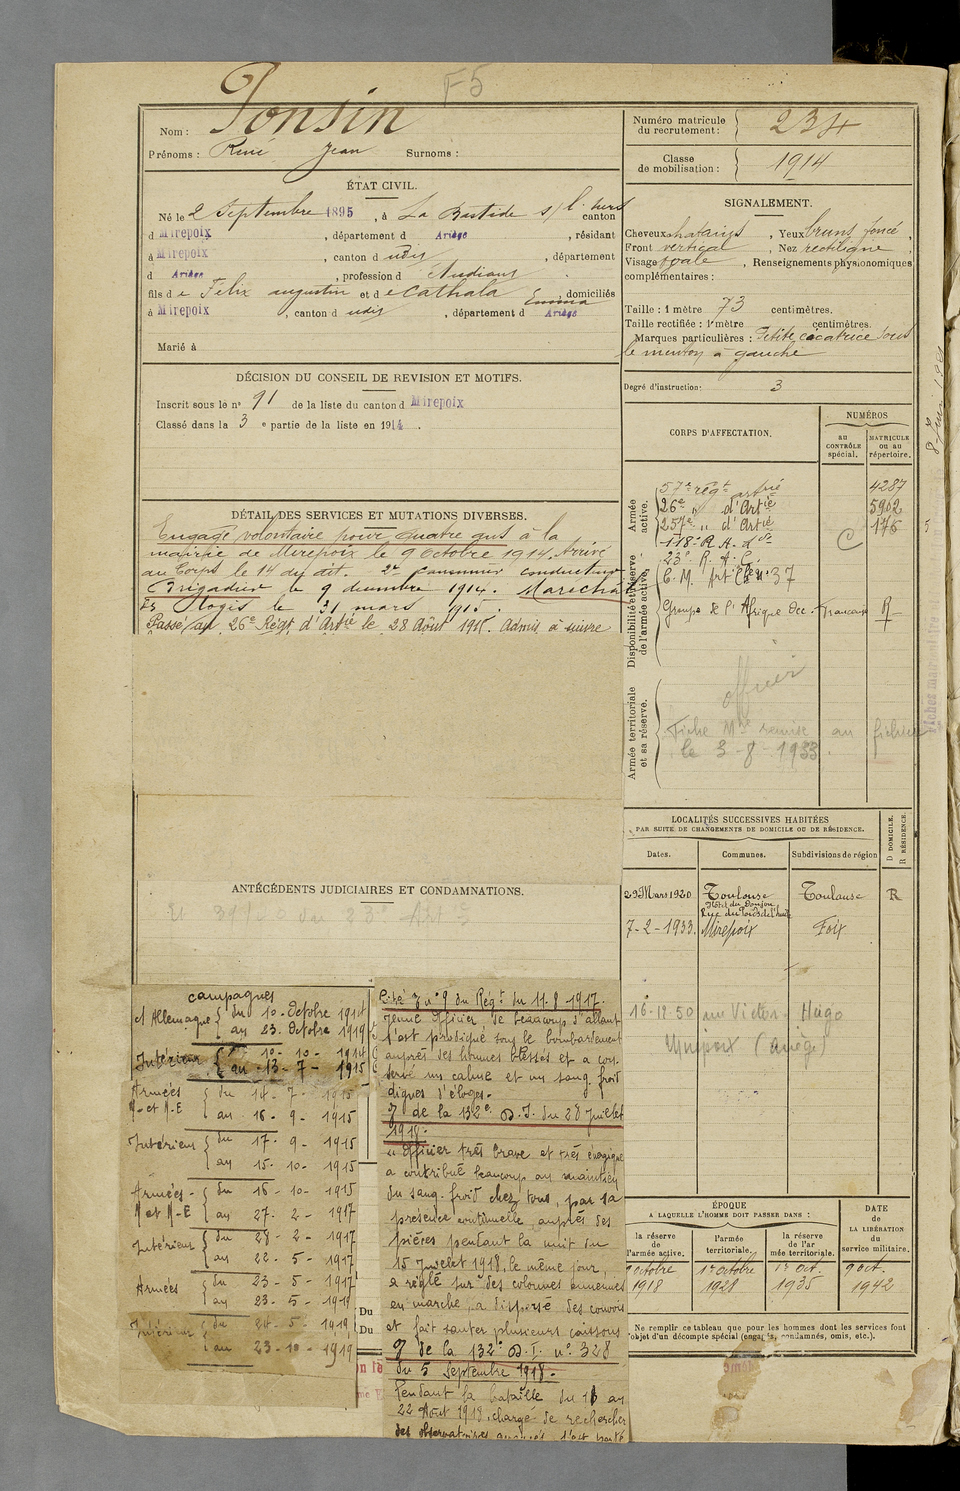 F5
Nom : Ponsin
Prénoms : René Jean Surnoms :
ÉTAT CIVIL.
Né le 2 Septembre 1895, à La Bastide s/ l'hers canton
d Mirepoix, département d Ariège, résidant
à Mirepoix, canton d udis, département
d Ariège, profession d
fils d e Felix augustin et d e Cathala Emma, domiciliés
à Mirepoix, canton d udis, département d Ariège
Marié à
DÉCISION DU CONSEIL DE REVISION ET MOTIFS.
Inscrit sous le n° 91 de la liste du canton d Mirepoix
Classé dans la 3e partie de la liste en 1914.
DÉTAIL DES SERVICES ET MUTATIONS DIVERSES.
Engagé volontaire pour quatre ans à la
mairie de Mirepoix le 9 Octobre 1914. Arrivé
au Corps le 14 du dit. 2e canonnier conducteur
Brigadier le 9 décembre 1914. Maréchal
des logis le 31 mars 1915.
Passé au 26e Régt d'Artie le 28 Août 1915. Admis à suivre
ANTÉCÉDENTS JUDICIAIRES ET CONDAMNATIONS.
campagnes
ct Allemagne { du 10 - Octobre 1914
au 23. Octobre 1919
Intérieur { du 10 - 10 - 1914
au 13 - 7 - 1915
Armées { du 14 - 7 - 1915
N - et N-E au 16 - 9 - 1915
Intérieur { du 17 - 9 - 1915
au 15 - 10 - 1915
Armées { du 16 - 10 - 1915
N et N-E au 27 - 2 - 1917
Intérieur { du 28 - 2 - 1917
au 22 - 5 - 1917
Armées { du 23 - 5 - 1917
au 23 - 5 - 1919
Intérieur { du 24 - 5 - 1919
au 23 - 10 - 1919
Du
Du
Cité O n° 9 du Régt du 11.8.1917.
Jeune Officier de beaucoup d'allant
s'est prodigué sous le bombardement
auprès des hommes blessés et a con-
servé un calme et un sang froid
dignes d'éloges.
O de la 132e D.I. du 28 juillet
1918.
"Officier très brave et très énergique
a contribué beaucoup au maintien
du sang-froid chez tous, par sa
présence continuelle auprès des
pièces pendant la nuit du
15 juillet 1918, le même jour,
a réglé sur des colonnes ennemies
en marche, a dispersé des convois
et fait sauter plusieurs caissons
O de la 132e D.I. n° 328
du 5 Septembre 1918 -
Pendant la bataille du 18 au
22 Août 1918, chargé de rechercher
des observatoires avancés, s'est porté
Numéro matricule
du recrutement : 234
Classe
de mobilisation : 1914
SIGNALEMENT.
Cheveux chatains, Yeux bruns foncé,
Front vertical, Nez rectiligne
Visage ovale, Renseignements physionomiques
complémentaires :
Taille : 1 mètre 73 centimètres.
Taille rectifiée : 1 mètre centimètres.
Marques particulières : Petite cicatrice sous
le menton à gauche
Degré d'instruction : 3
CORPS D'AFFECTATION.
NUMÉROS
au
CONTRÔLE
spécial.
MATRICULE
ou au
répertoire.
Armée
active.
57e régt artrie 4287
26e " d'Artie 5902
257e " d'Artie 176
118e R.A. de C
Disponibilité et réserve
de l'armée active.
23e R.A.C.
C. M. Artie n° 37
Groupe de l'Afrique Occ. Française R
Armée territoriale
et sa réserve.
officier
Fiche Mle remise au fichier
le 3-8-1933.
LOCALITÉS SUCCESSIVES HABITÉES
PAR SUITE DE CHANGEMENTS DE DOMICILE OU DE RÉSIDENCE.
Dates. Communes. Subdivisions de région
D DOMICILE.
R RÉSIDENCE.
29 Mars 1920 Toulouse Toulouse R
Hôtel du Donjon
Rue du Poids de l'huile
7-2-1933. Mirepoix Foix
16-12-50 rue Victor Hugo
Mirepoix (Ariège)
ÉPOQUE
A LAQUELLE L'HOMME DOIT PASSER DANS :
la réserve
de l'armée active.
l'armée
territoriale.
la réserve
de l'ar
mée territoriale.
DATE
de
LA LIBÉRATION
du
service militaire.
9 octobre 1r octobre 1r oct. 9 oct.
1918 1928 1935 1942
Ne remplir ce tableau que pour les hommes dont les services font
l'objet d'un décompte spécial (engagés, condamnés, omis, etc.).